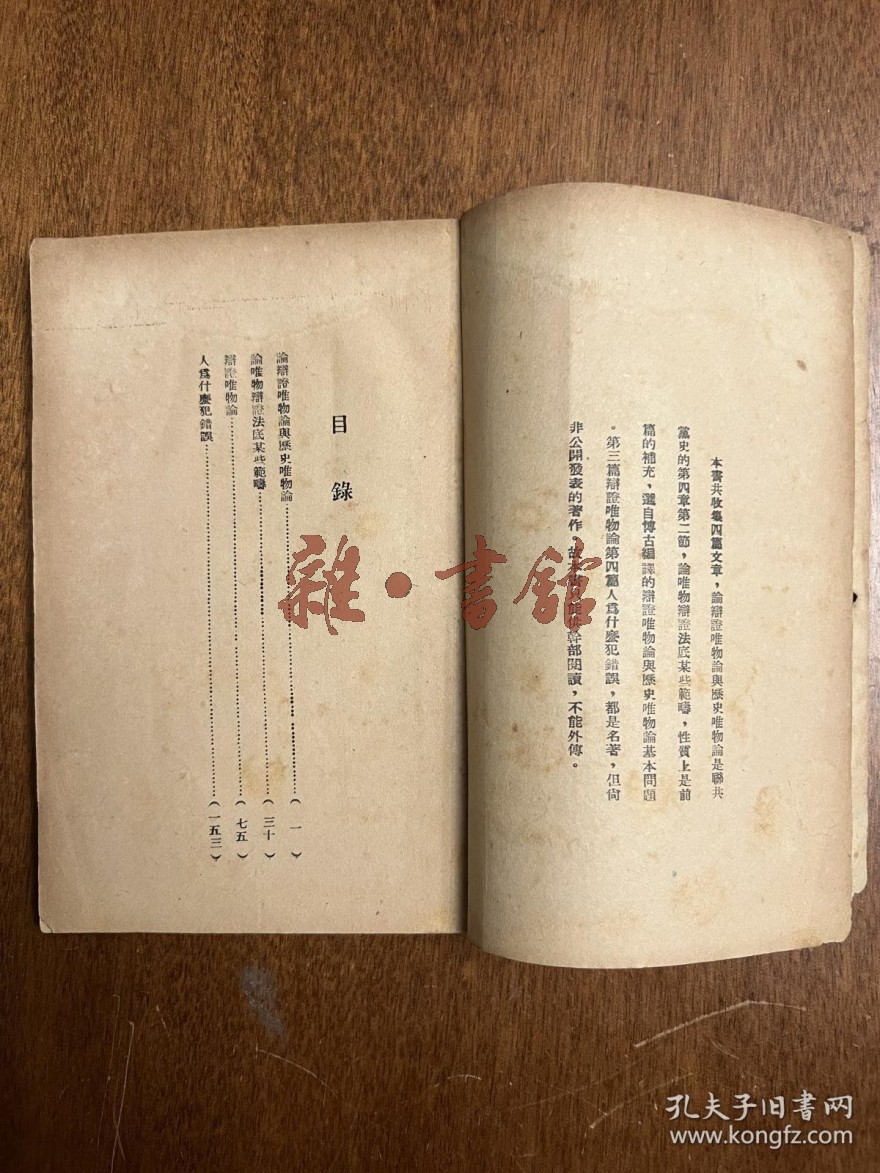 本書共收集四篇文章，論辯證唯物論與歷史唯物論是聯共
黨史的第四章第二節，論唯物辯證法底某些範疇，性質上是前
篇的補充，選自博古編譯的辯證唯物論與歷史唯物論基本問題
。第三篇辯證唯物論第四篇人爲什麼犯錯誤，都是名著，但尙
非公開發表的著作，故本書只能供幹部閱讀，不能外傳。
目錄
論辯證唯物論與歷史唯物論……（一）
論唯物辯證法底某些範疇……（三十）
辯證唯物論……（七五）
人爲什麼犯錯誤……（一五三）
雜·書館
孔夫子旧书网
www.kongfz.com